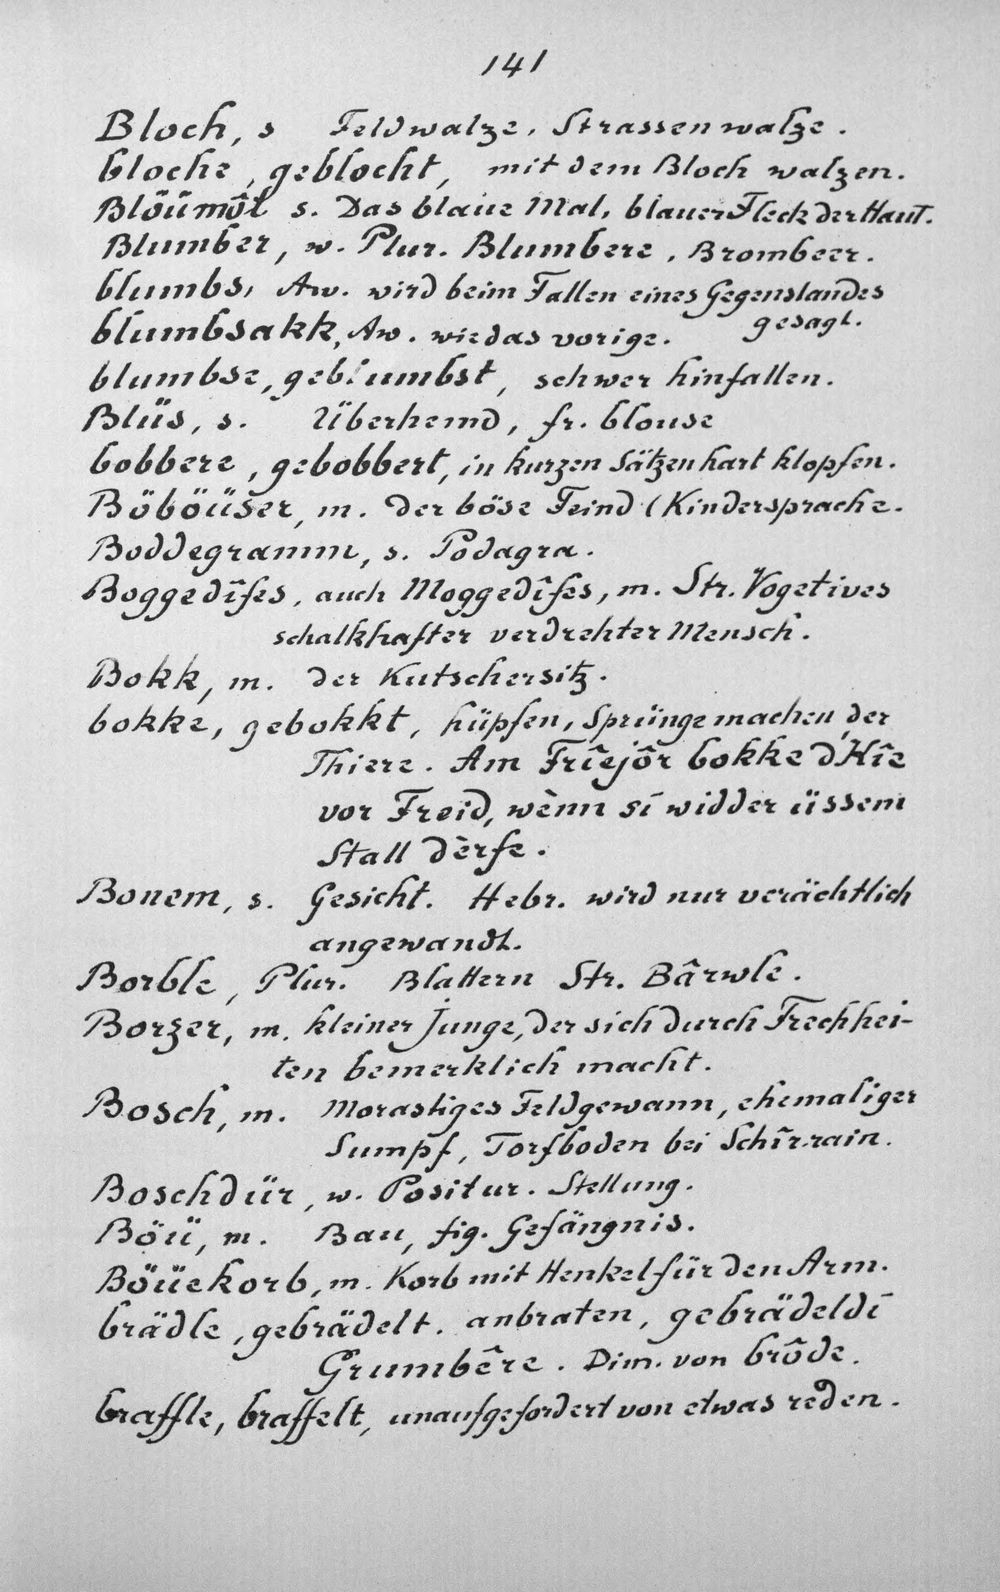 141
Bloch, s Feldwalze, Strassenwalze.
bloche, geblocht, mit dem Bloch walzen.
Blöümôl s. Das blaue Mal, blauer Fleck der Haut.
Blumber, w. Plur. Blumbere, Brombeer.
blumbs, Aw. wird beim Fallen eines Gegenstandes
gesagt.
blumbsakk, Aw. wie das vorige.
blumbse, geblumbst, schwer hinfallen.
Blüs, s. Überhemd, fr. blouse
bobbere, gebobbert, in kurzen Sätzen hart klopfen.
Böböüser, m. der böse Feind (Kindersprache.
Boddegramm, s. Podagra.
Boggedîfes, auch Moggedîfes, m. Str. Vogetives
schalkhafter verdrehter Mensch.
Bokk, m. der Kutschersitz.
bokke, gebokkt, hüpfen, Sprünge machen, der
Thiere. Am Frîejôr bokke d'Kîe
vor Freid, wènn sí widder üssem
Stall dèrfe.
Bonem, s. Gesicht. Hebr. wird nur verächtlich
angewandt.
Borble, Plur. Blattern Str. Bârwle.
Borzer, m. kleiner Junge, der sich durch Frechhei-
ten bemerklich macht.
Bosch, m. Morastiges Feldgewann, ehemaliger
Sumpf, Torfboden bei Schîrrain.
Boschdür, w. Positur. Stellung.
Böü, m. Bau, fig. Gefängnis.
Böüekorb, m. Korb mit Henkel für den Arm.
brädle, gebrädelt. anbraten, gebrädeldí
Grumbêre. Dim. von brôde.
braffle, braffelt, unaufgefordert von etwas reden.